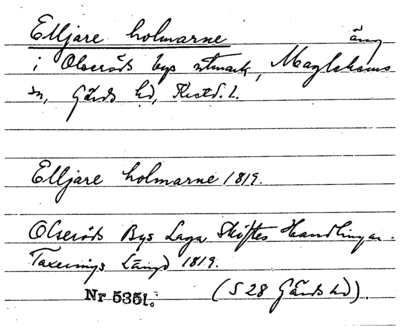 Elljare holmarne äng
i Olseröds bys utmark, Maglehems
sn, Gärds hd, Kristd. l.
Elljare holmarne 1819.
Olseröds Bys Laga Skiftes Handlingar.
Taxerings Längd 1819.
Nr 5351. (S 28 Gärds hd).